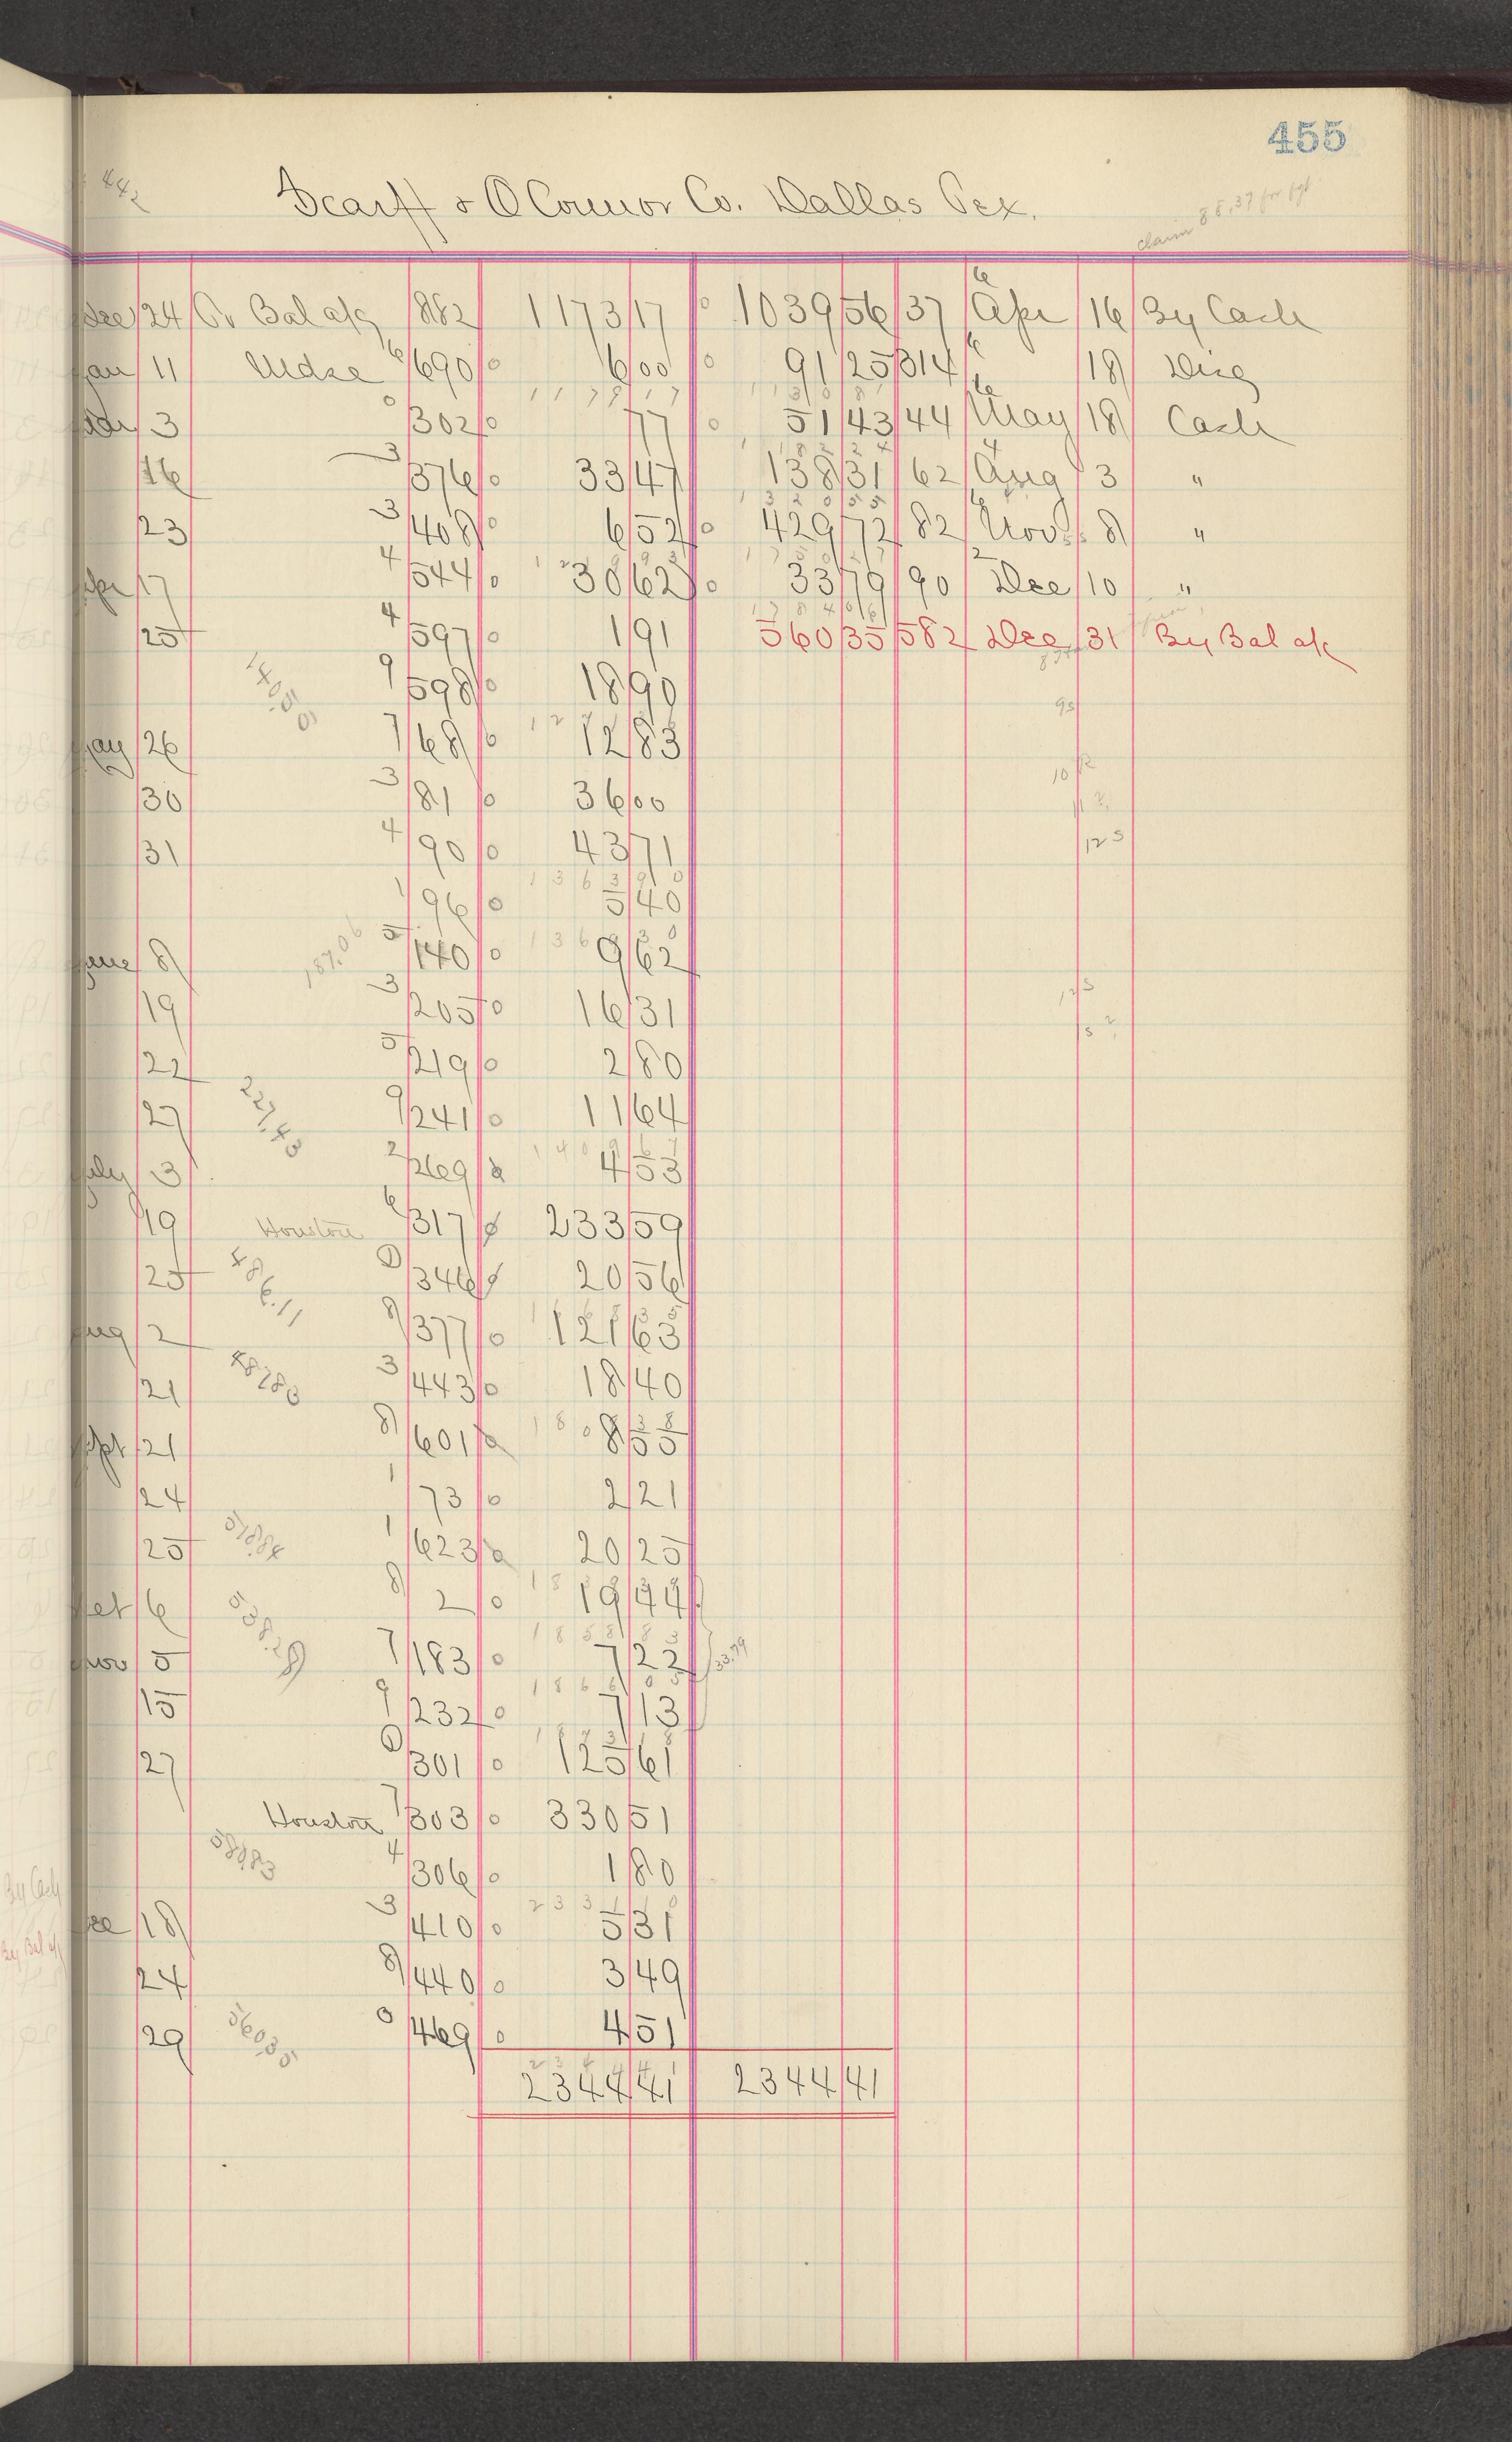 455
442
Scarff & O'Connor Co. Dallas Tex.
claim 88.37 for fgt
Dec 24 To Bal a/c 882 1173 17 1039 56 37 Apr 16 By Cash
Jan 11 Mdse 6 690 6 00 91 25 314 " 18 Disc
3 302 77 51 43 44 May 18 Cash
16 3 376 33 47 138 31 62 Aug 3 "
23 3 408 6 52 429 72 82 Nov 8 "
Apr 17 4 544 30 62 33 79 90 Dec 10 "
25 4 597 1 91 560 35 582 Dec 31 By Bal a/c
9 598 18 90
May 26 7 68 12 83
30 3 81 36 00
31 4 90 43 71
1 96 5 40
June 8 5 140 9 62
187.06
19 3 205 16 31
22 5 219 2 80
27 9 241 11 64
227.43
July 3 2 269 4 53
19 Houston 6 317 233 59
25 346 20 56
486.11
Aug 2 8 377 121 63
21 3 443 18 40
Sept 21 8 601 8 55
24 1 73 2 21
25 1 623 20 25
Oct 6 8 2 19 44
Nov 5 7 183 7 22 33.79
15 9 232 7 13
27 301 125 61
Houston 7 303 330 51
4 306 1 80
Dec 18 3 410 5 31
24 8 440 3 49
29 469 4 51
560.35
2344 41 2344 41
By Cash
By Bal a/c